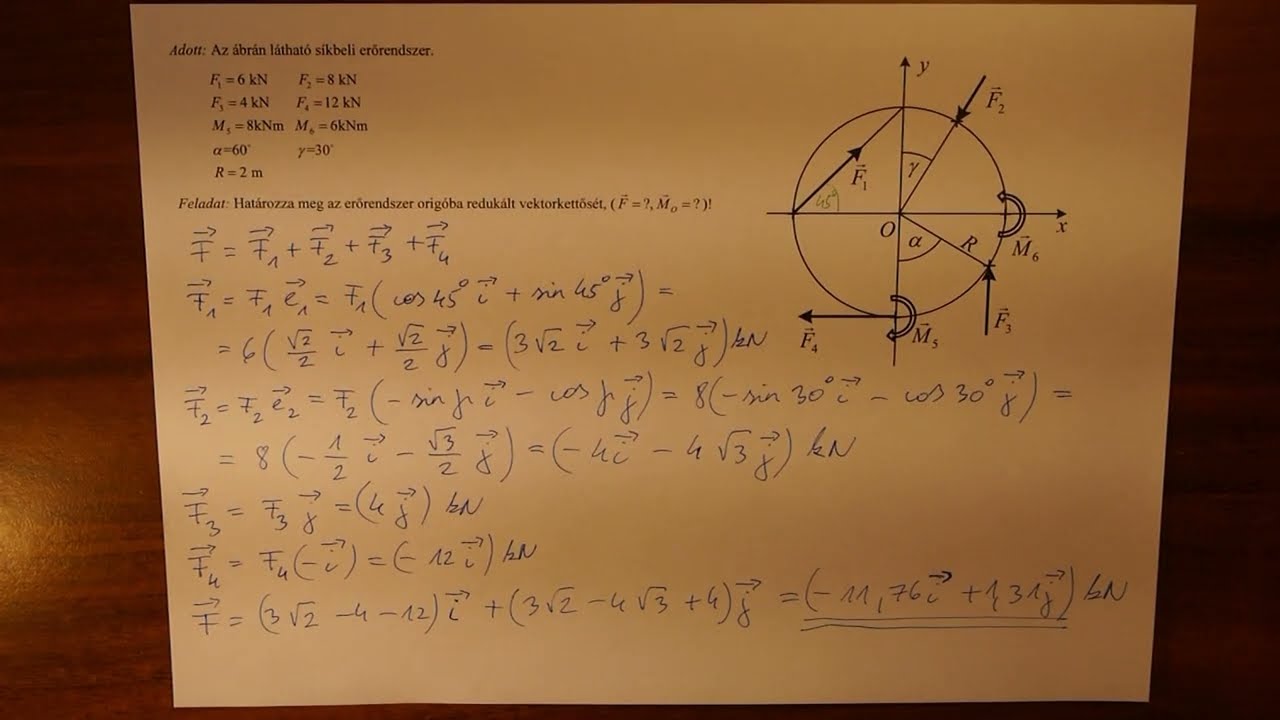 Adott: Az ábrán látható síkbeli erőrendszer.
F₁ = 6 kN F₂ = 8 kN
F₃ = 4 kN F₄ = 12 kN
M₅ = 8kNm M₆ = 6kNm
α=60° γ=30°
R = 2 m
Feladat: Határozza meg az erőrendszer origóba redukált vektorkettősét, (F⃗ = ?, M⃗_O = ?)!
F⃗ = F⃗₁ + F⃗₂ + F⃗₃ + F⃗₄
F⃗₁ = F₁ e⃗₁ = F₁ (cos 45° i⃗ + sin 45° j⃗) =
= 6 (√2/2 i⃗ + √2/2 j⃗) = (3√2 i⃗ + 3√2 j⃗) kN
F⃗₂ = F₂ e⃗₂ = F₂ (- sin γ i⃗ - cos γ j⃗) = 8(-sin 30° i⃗ - cos 30° j⃗) =
= 8 (-1/2 i⃗ - √3/2 j⃗) = (-4i⃗ - 4√3 j⃗) kN
F⃗₃ = F₃ j⃗ = (4 j⃗) kN
F⃗₄ = F₄(-i⃗) = (-12 i⃗) kN
F⃗ = (3√2 -4 -12) i⃗ + (3√2 -4√3 +4) j⃗ = (-11,76 i⃗ + 1,31 j⃗) kN
y
F⃗₂
γ
F⃗₁
45°
O
α
R
x
M⃗₆
F⃗₃
F⃗₄
M⃗₅